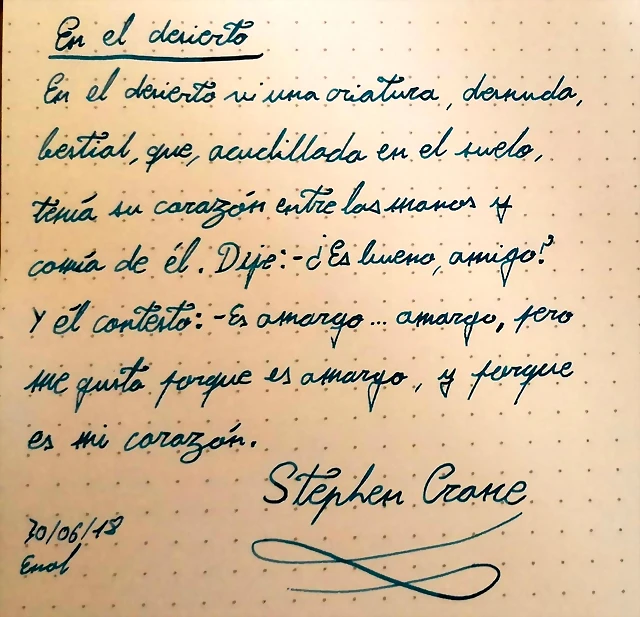 En el desierto
En el desierto vi una criatura, desnuda,
bestial, que, acuclillada en el suelo,
tenía su corazón entre las manos y
comía de él. Dije: -¿Es bueno, amigo?
Y él contesto: -Es amargo... amargo, pero
me gusta porque es amargo, y porque
es mi corazón.
Stephen Crane
30/06/18
Enol